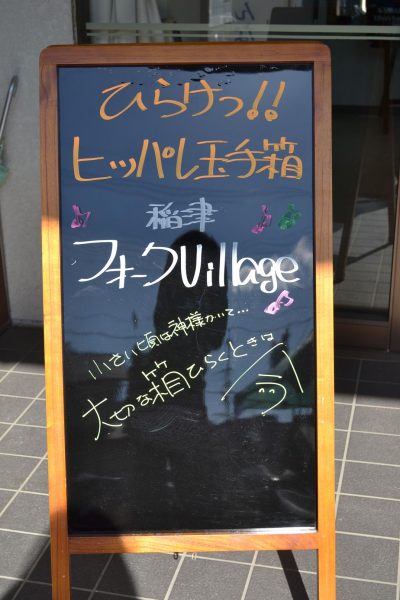 ひらけっ!!
ヒッパレ玉手箱
稲津
フォークVillage
小さい頃は神様がいて...
大切な箱ひらくときは
今